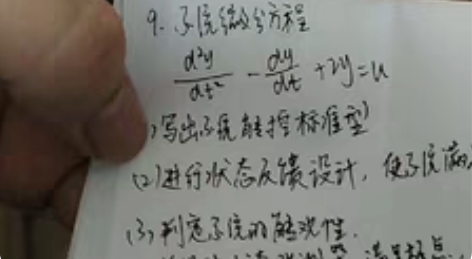 9. 系统微分方程
d²y/dt² - dy/dt + 2y = u
1) 写出系统能控标准型
(2) 进行状态反馈设计, 使系统满
(3) 判定系统的能观性.